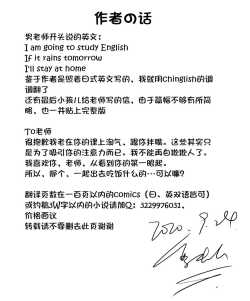 作者の话
男老师开头说的英文：
I am going to study English
If it rains tomorrow
I'll stay at home
鉴于作者是照着日式英文写的，我就用Chinglish的谓
谓翻了
还有最后小孩儿给老师写的信，由于篇幅不够有所简
略，也一并贴上完整版
To老师
很抱歉我老在你的课上淘气，跟你拌嘴。这些其实只
是为了吸引你的注意力而已。我不能再自欺欺人了。
我喜欢你，老师，从看到你的第一眼起。
所以，那个，一起出去吃饭什么的…可以嘛？
翻译页数在一百页以内的comics（日、英双语皆可）
或约稿3W字以内的小说请加Q：3229976031，
价格面议
转载请不要删去此页谢谢
2020.9.24